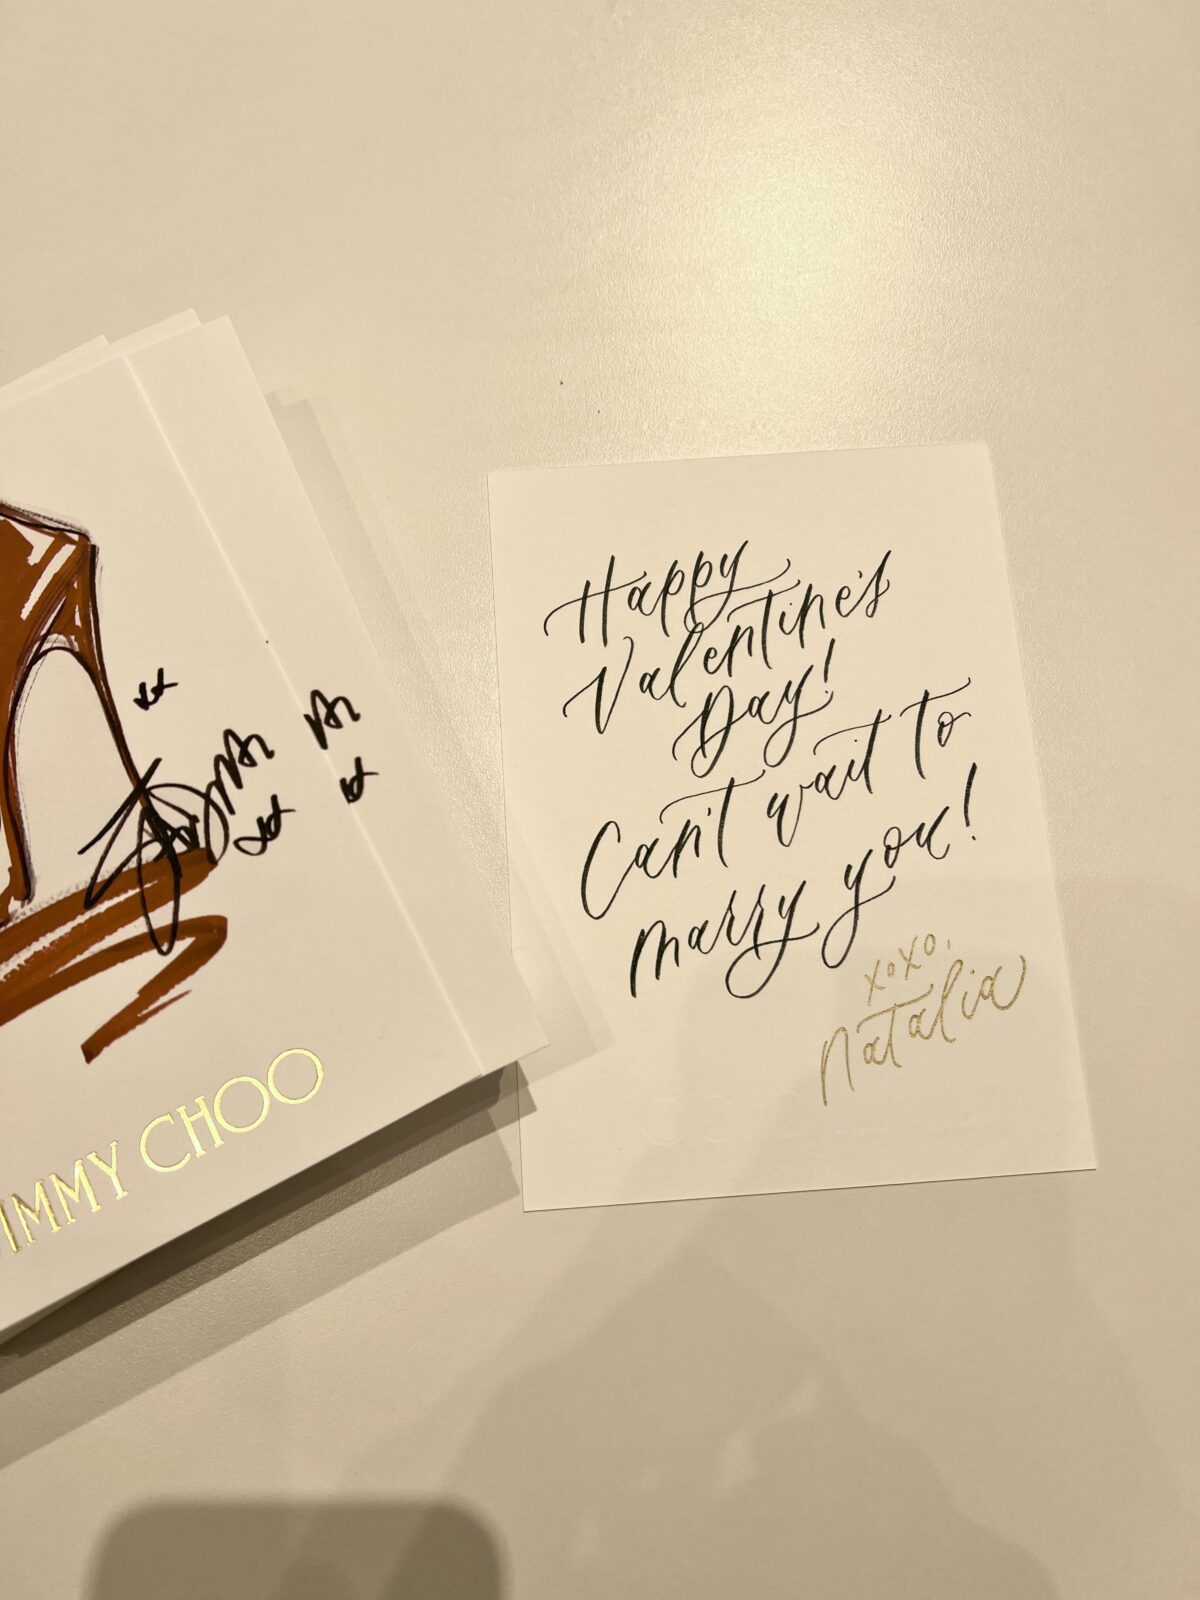 JIMMY CHOO
Happy
Valentine's
Day!
Can't wait to
marry you!
xoxo,
Natalia